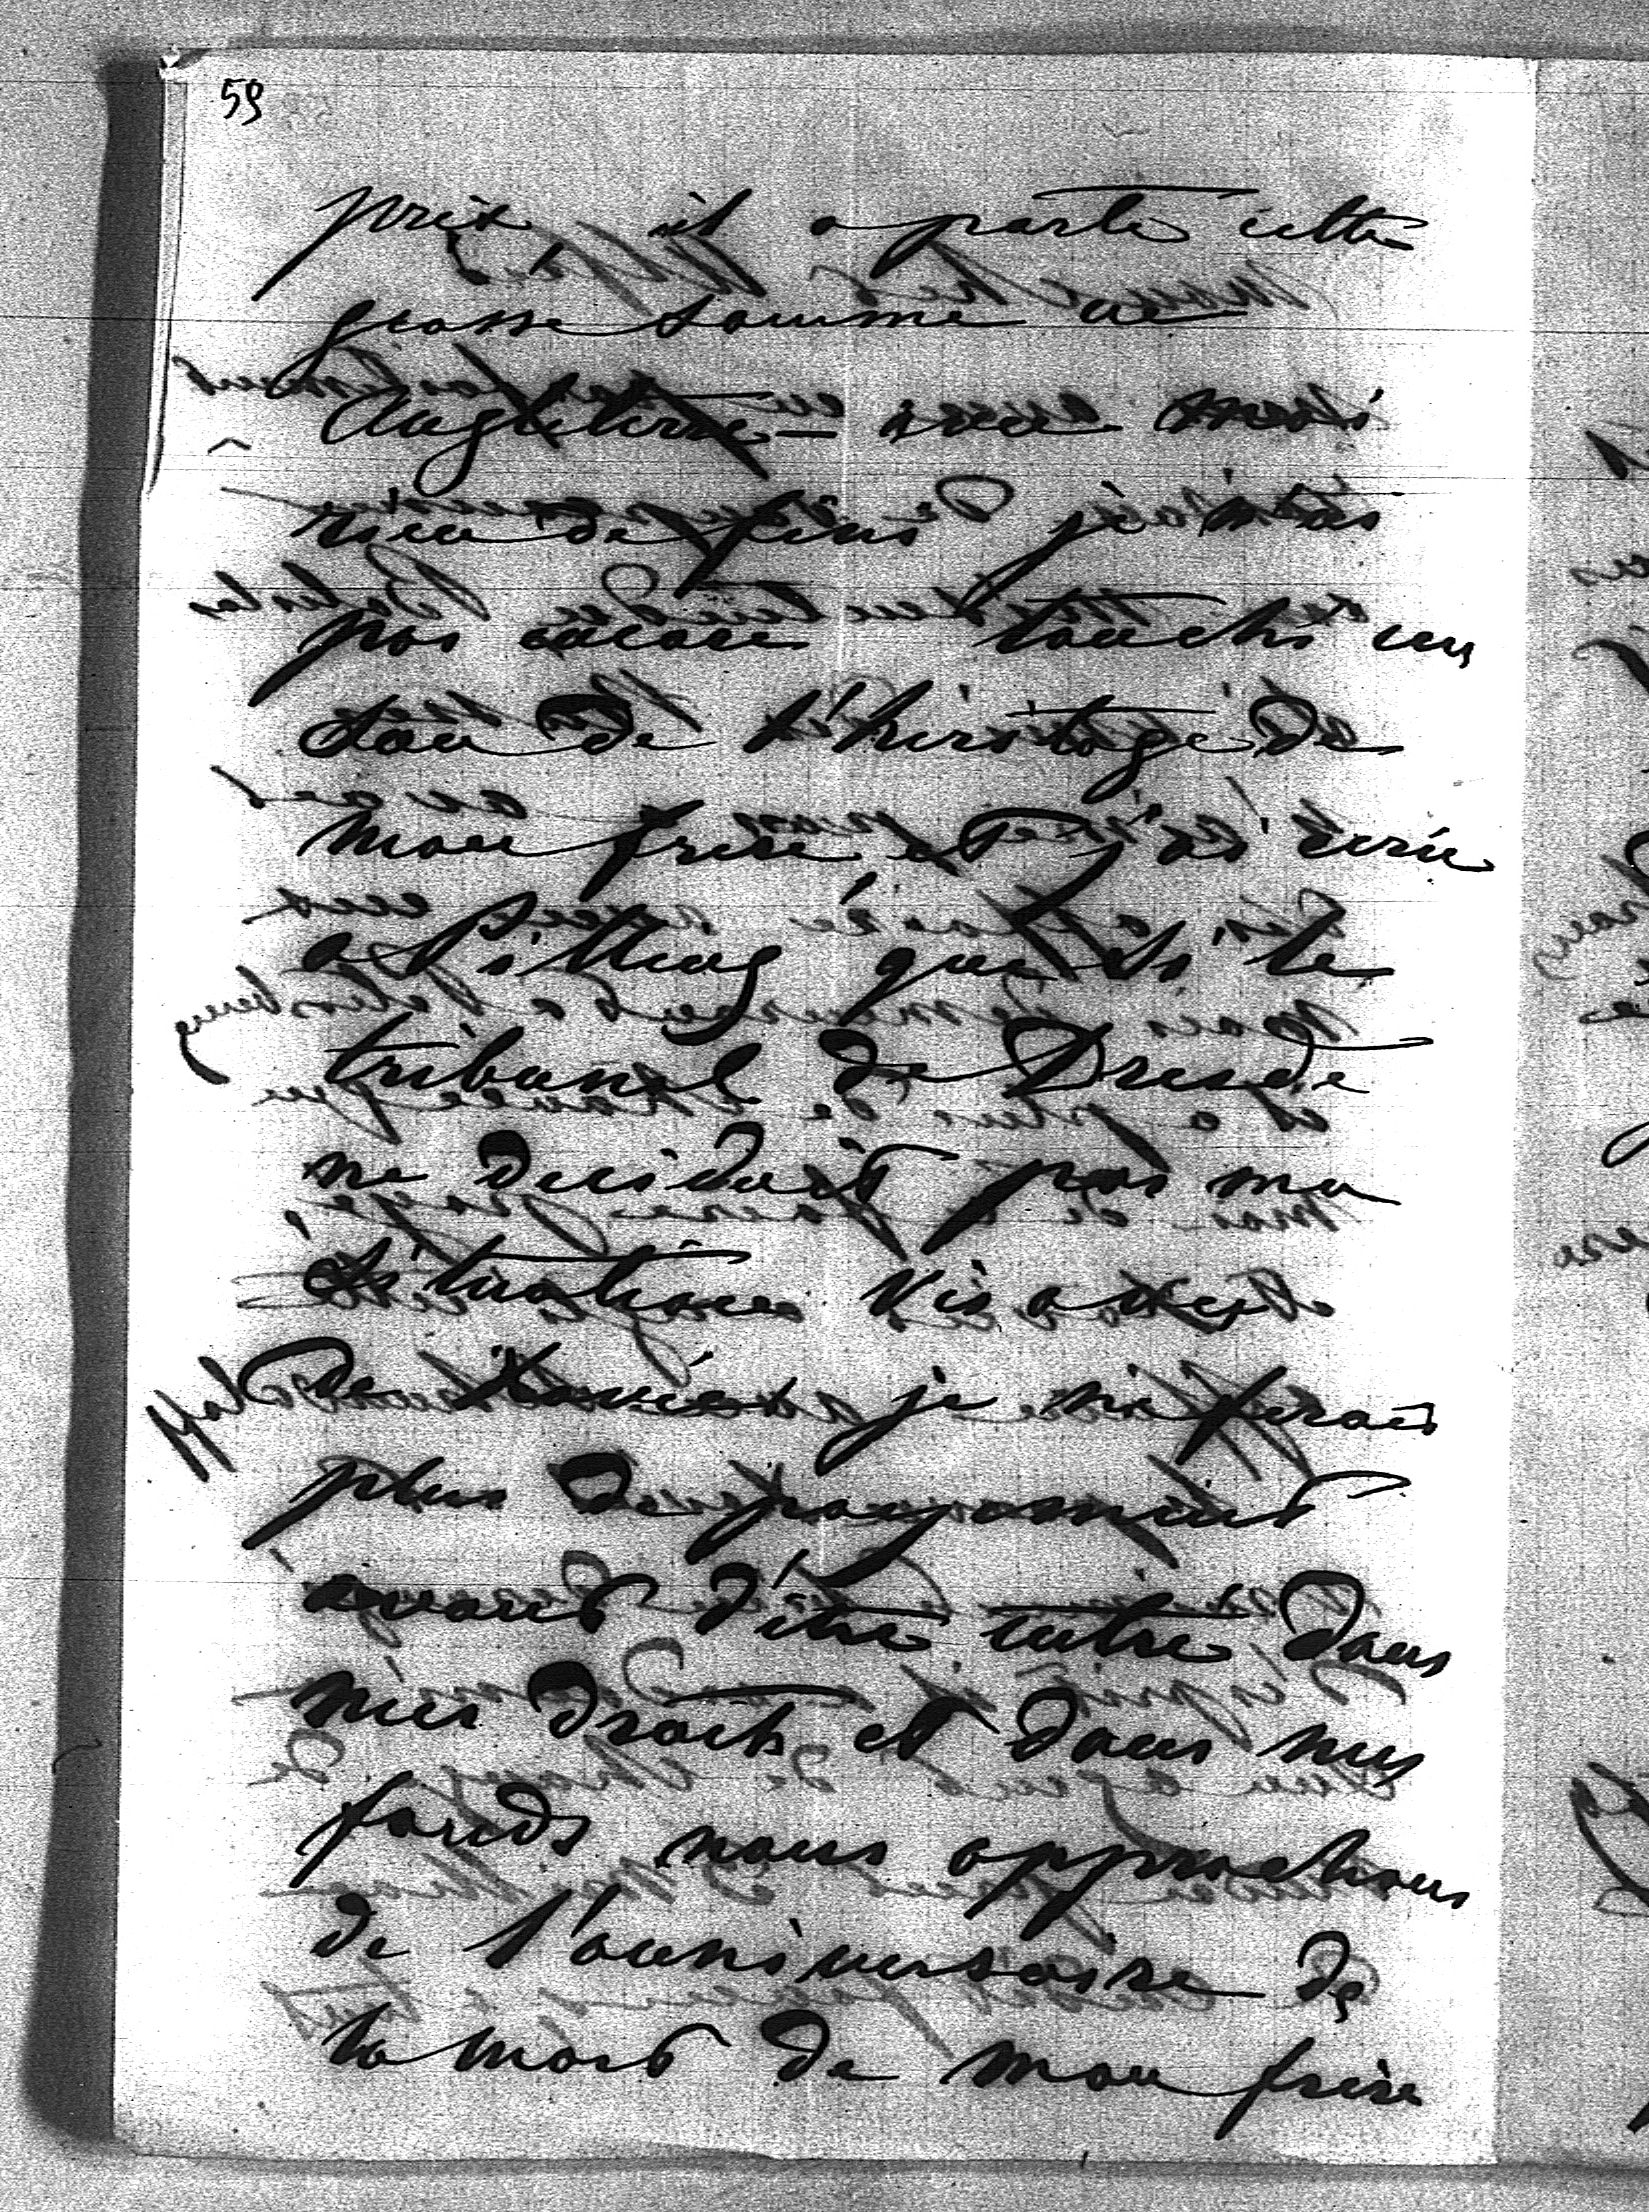 59
prix, il a parte cette
grosse somme de
Angleterre — sous moi
rien de plus je n'ai
pas encore touché un
sou de l'heritage de
mon frere et j'ai ecrie
a Pitting que si le
tribunal de Dresde
ne decidait pas ma
situation vis a vis
de je ne ferais
plus de payement
avant d'être entre dans
mes droits et dans mes
fonds nous approchons
de l'anniversaire de
la mort de mon frere